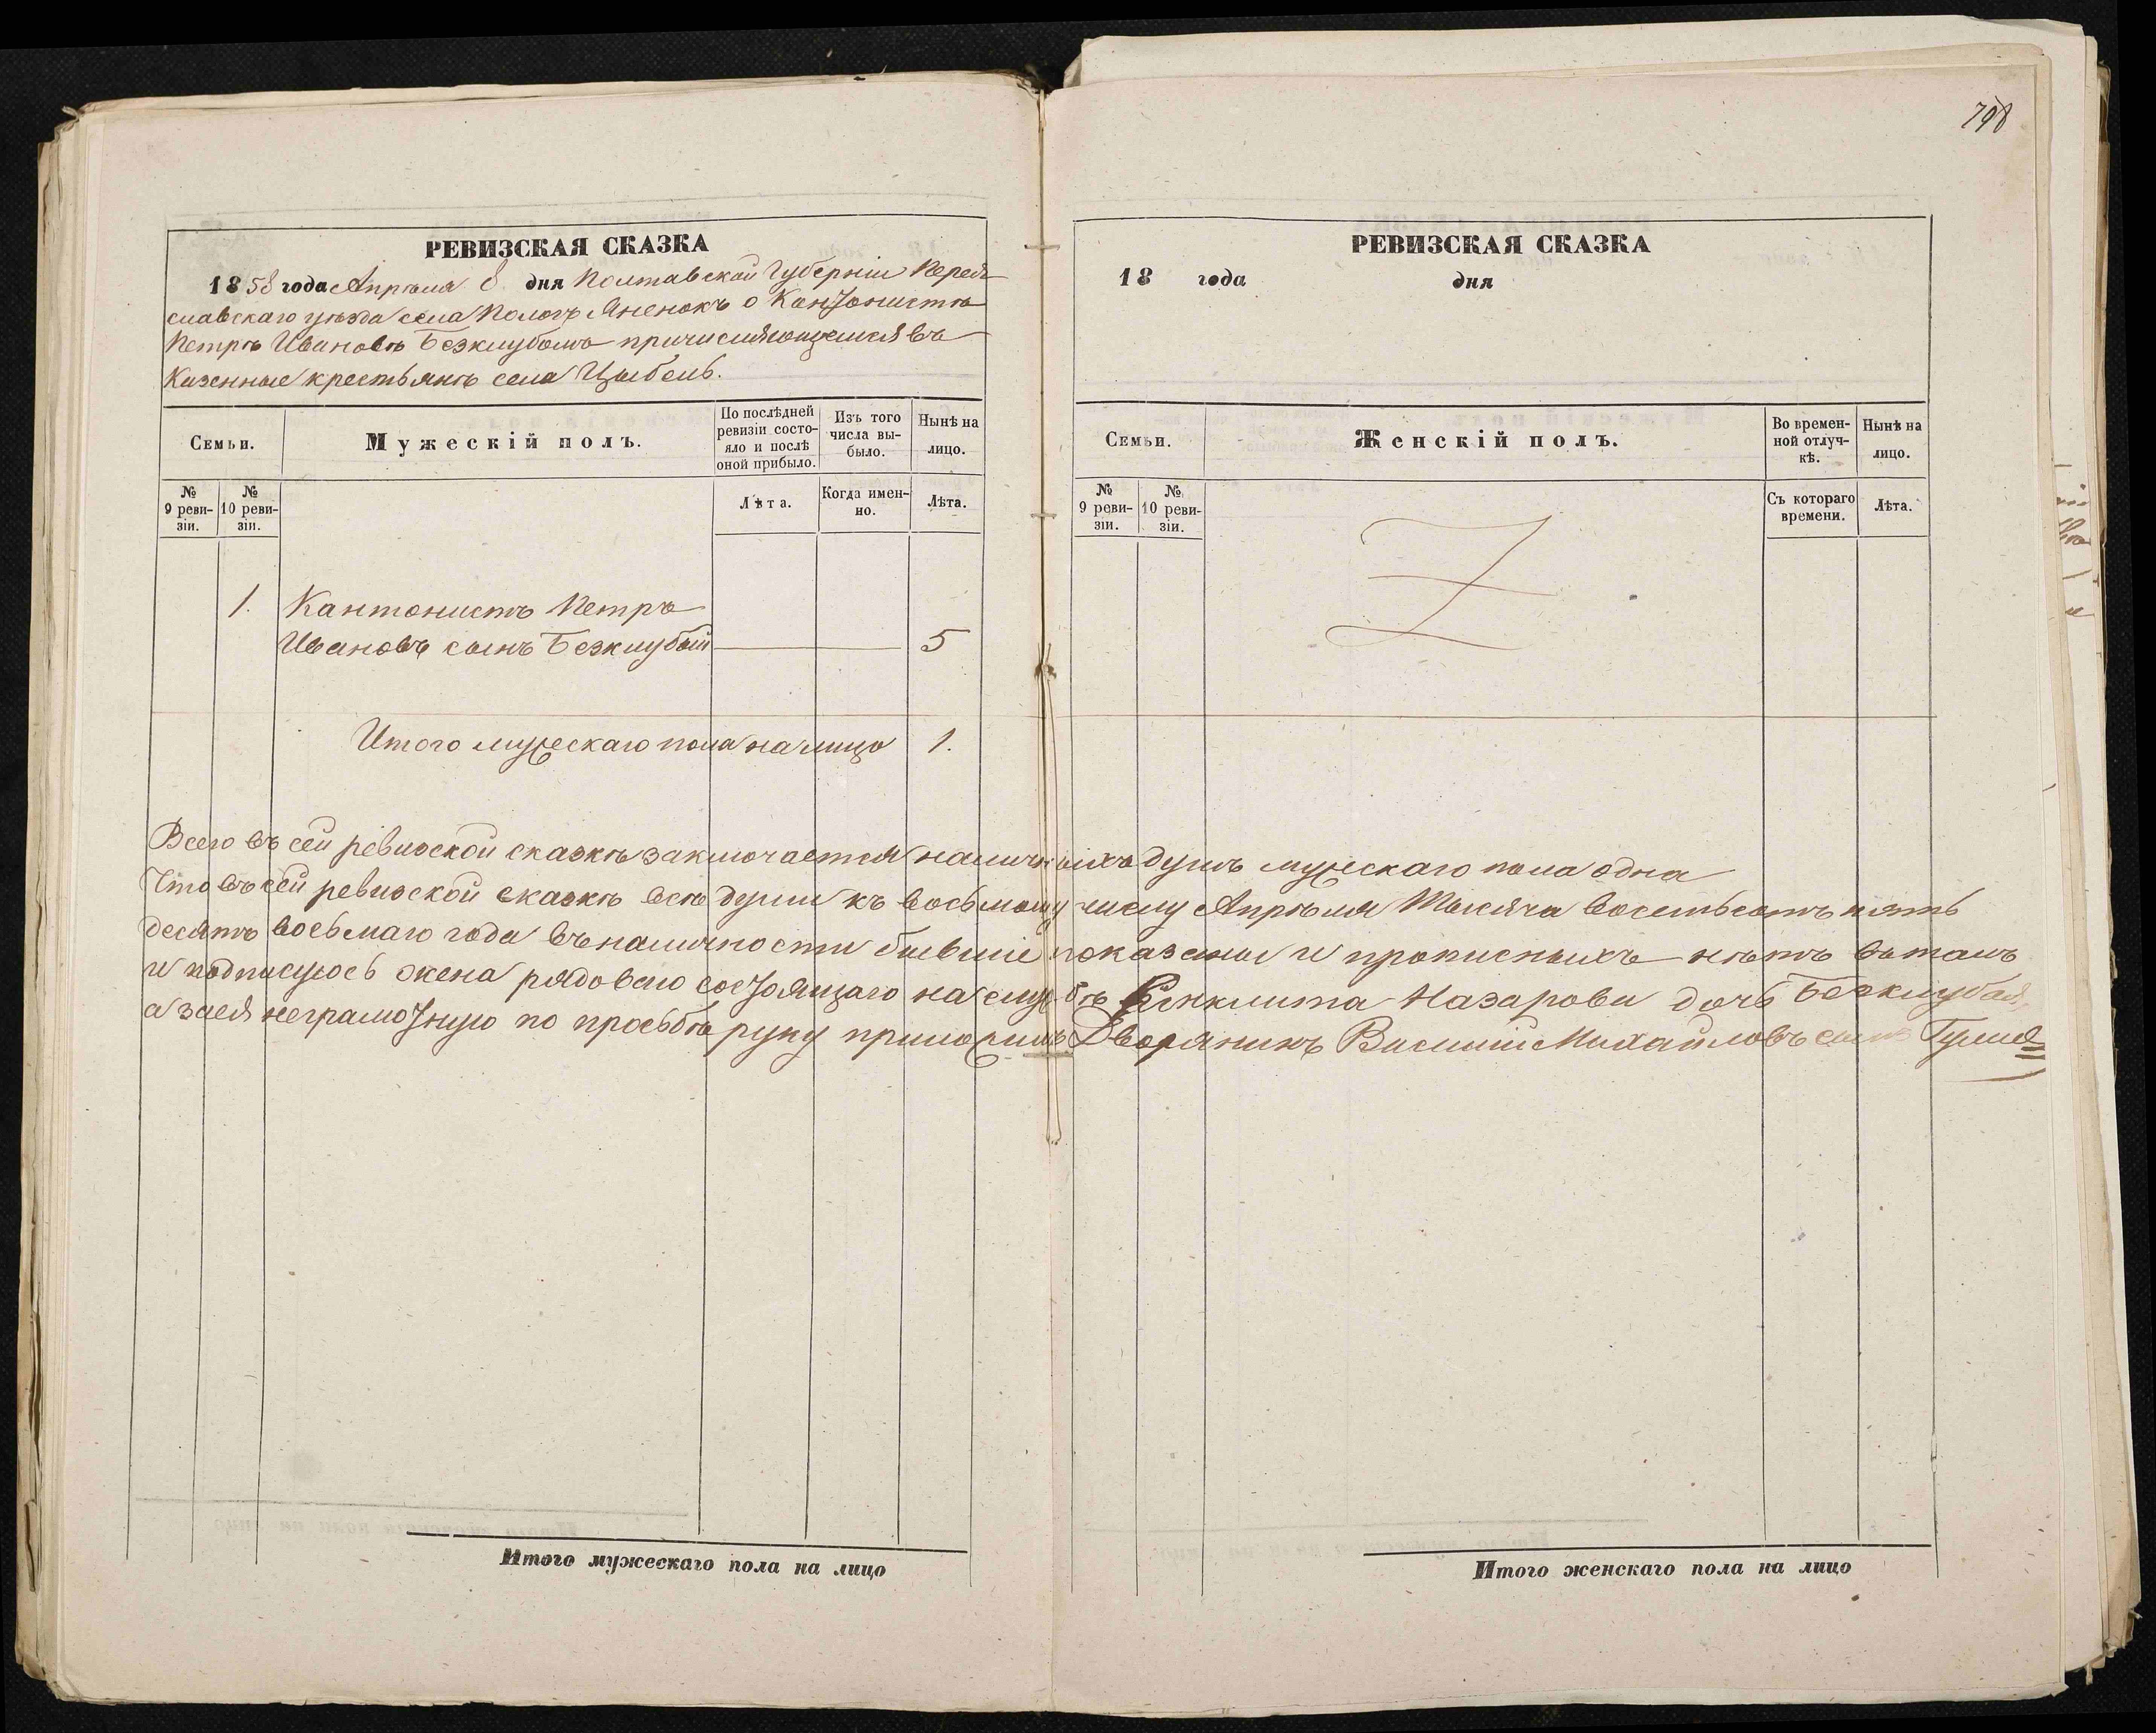 798
РЕВИЗСКАЯ СКАЗКА
1858 года Апрѣля 8 дня Полтавской Губерніи Перея-
славскаго уѣзда села Пологъ Яненокъ о Кантонистѣ
Петрѣ Ивановѣ Безклубомъ причисляющемся въ
Казенные крестьянъ села Цыбель.
Семьи.
Мужескій полъ.
По послѣдней ревизіи состояло и послѣ оной прибыло.
Изъ того числа выбыло.
Нынѣ на лицо.
№ 9 ревизіи.
№ 10 ревизіи.
Лѣта.
Когда именно.
Лѣта.
1. Кантонистъ Петръ
Ивановъ сынъ Безклубый 5
Итого мужескаго пола на лицо 1.
РЕВИЗСКАЯ СКАЗКА
18 года дня
Семьи.
Женскій полъ.
Во временной отлучкѣ.
Нынѣ на лицо.
№ 9 ревизіи.
№ 10 ревизіи.
Съ котораго времени.
Лѣта.
Всего въ сей ревизской сказкѣ заключается наличныхъ душъ мужескаго пола одна
Что въ сей ревизской сказкѣ всѣ души къ восьмому числу Апрѣля Тысяча восемьсотъ пять
десятъ восьмаго года въ наличности бывшіе показаны и прописныхъ нѣтъ въ томъ
и подписуюсь жена рядоваго состоящаго на службѣ Синклита Назарова дочь Безклубая,
а за ея неграмотную по прозьбѣ руку приложилъ Дворянинъ Василій Михайловъ сынъ
Итого мужескаго пола на лицо
Итого женскаго пола на лицо